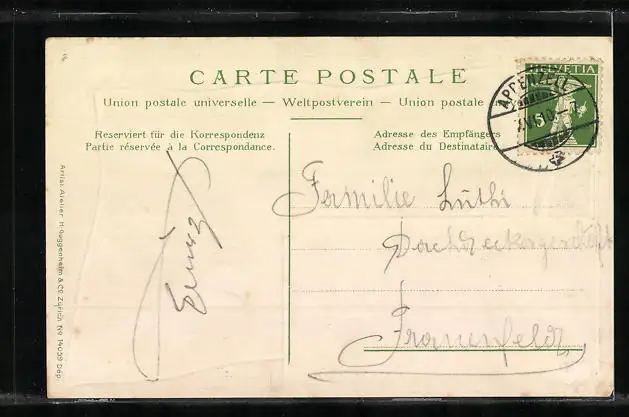 CARTE POSTALE
Union postale universelle — Weltpostverein — Union postale
Reserviert für die Korrespondenz
Partie réservée à la Correspondance.
Adresse des Empfängers
Adresse du Destinataire
HELVETIA
APPENZELL
Familie Lüthi
Dachdeckergeschäft
Frauenfeld
Artist. Atelier H. Guggenheim & Co. Zürich No 14039 Dép.